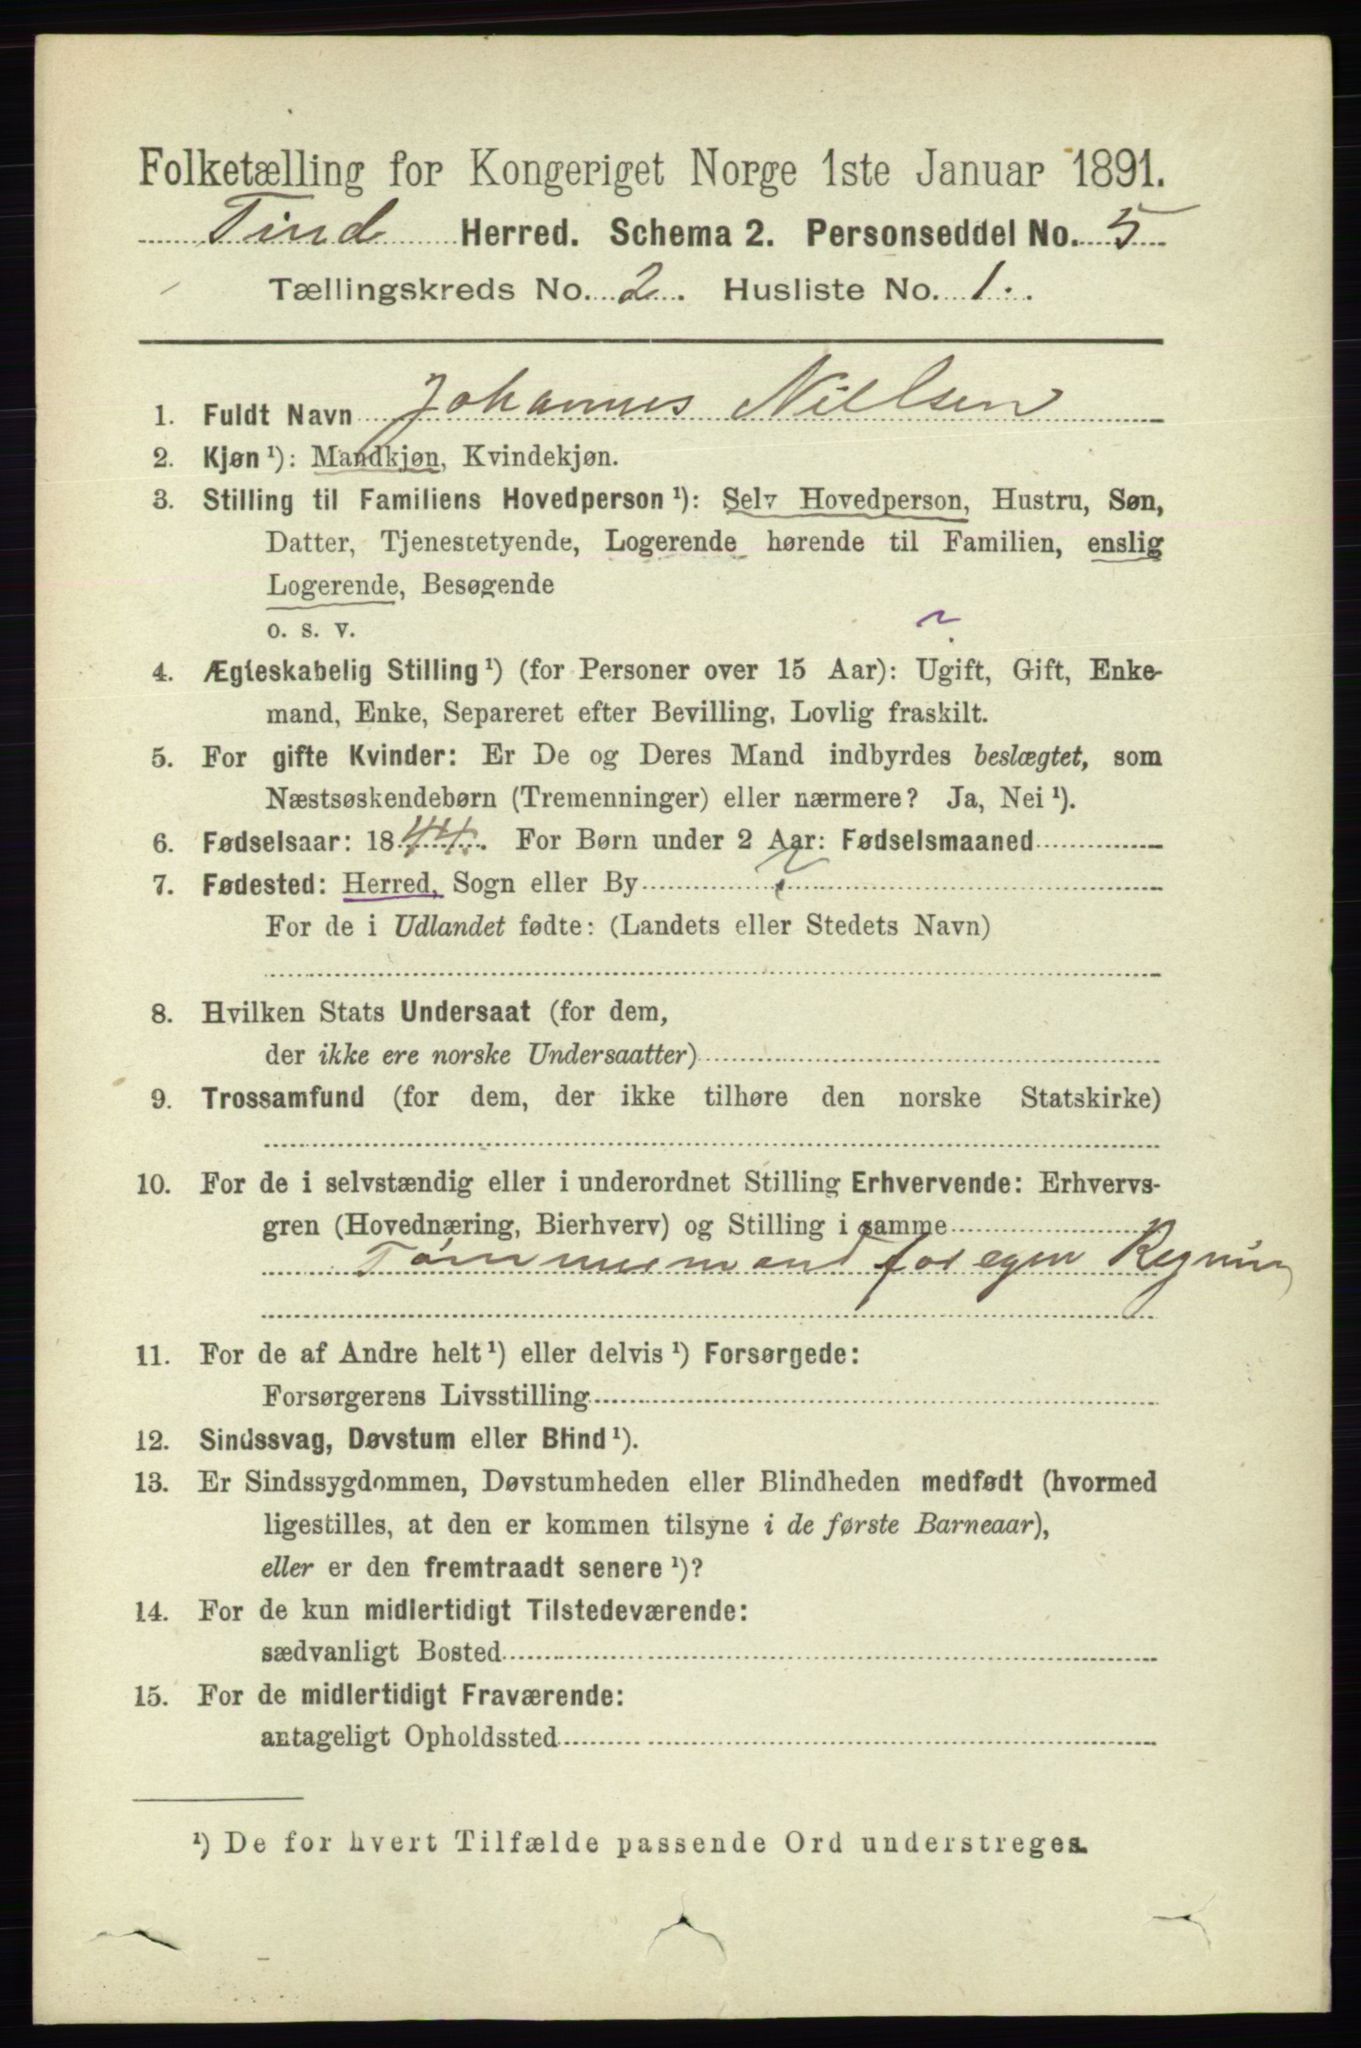 Folketælling for Kongeriget Norge 1ste Januar 1891.
Tind Herred. Schema 2. Personseddel No. 5
Tællingskreds No. 2. Husliste No. 1.
1. Fuldt Navn Johannes Nielsen
2. Kjøn ¹): Mandkjøn, Kvindekjøn.
3. Stilling til Familiens Hovedperson ¹): Selv Hovedperson, Hustru, Søn,
Datter, Tjenestetyende, Logerende hørende til Familien, enslig
Logerende, Besøgende
o. s. v. ?
4. Ægteskabelig Stilling ¹) (for Personer over 15 Aar): Ugift, Gift, Enke-
mand, Enke, Separeret efter Bevilling, Lovlig fraskilt.
5. For gifte Kvinder: Er De og Deres Mand indbyrdes beslægtet, som
Næstsøskendebørn (Tremenninger) eller nærmere? Ja, Nei ¹).
6. Fødselsaar: 1844. For Børn under 2 Aar: Fødselsmaaned
7. Fødested: Herred, Sogn eller By
For de i Udlandet fødte: (Landets eller Stedets Navn)
8. Hvilken Stats Undersaat (for dem,
der ikke ere norske Undersaatter)
9. Trossamfund (for dem, der ikke tilhøre den norske Statskirke)
10. For de i selvstændig eller i underordnet Stilling Erhvervende: Erhvervs-
gren (Hovednæring, Bierhverv) og Stilling i samme
Tømmermand for egen Regning
11. For de af Andre helt ¹) eller delvis ¹) Forsørgede:
Forsørgerens Livsstilling
12. Sindssvag, Døvstum eller Blind ¹).
13. Er Sindssygdommen, Døvstumheden eller Blindheden medfødt (hvormed
ligestilles, at den er kommen tilsyne i de første Barneaar),
eller er den fremtraadt senere ¹)?
14. For de kun midlertidigt Tilstedeværende:
sædvanligt Bosted
15. For de midlertidigt Fraværende:
antageligt Opholdssted
¹) De for hvert Tilfælde passende Ord understreges.